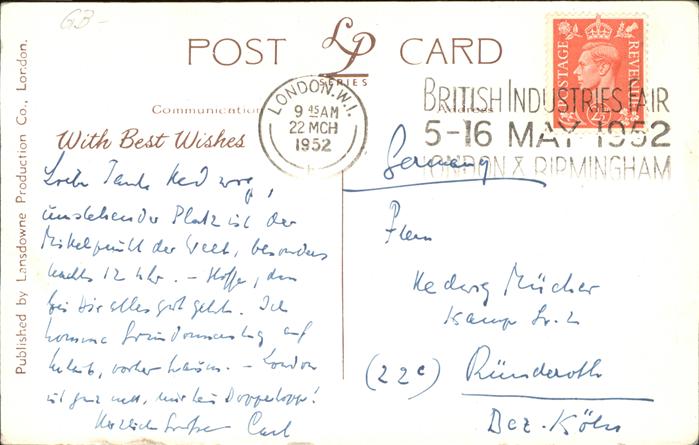 GB-
POST LP CARD
SERIES
Communication
Address
With Best Wishes
Published by Lansdowne Production Co., London.
LONDON.W.I.
9 45 AM
22 MCH
1952
POSTAGE REVENUE
2½
BRITISH INDUSTRIES FAIR
5-16 MAY 1952
LONDON & BIRMINGHAM
Liebe Tante Hedwig,
umstehender Platz ist der
Mittelpunkt der Welt, besonders
nachts 12 Uhr. – Hoffe, dass
bei Dir alles gut geht. Ich
komme Gründonnerstag auf
Urlaub, vorher kaum. – London
ist ganz nett, nur kein Doppelkopp!
Herzliche Grüße Carl
Germany
Frau
Hedwig Mücher
Kamp Str. 2
(22c) Ründeroth
Bez. Köln